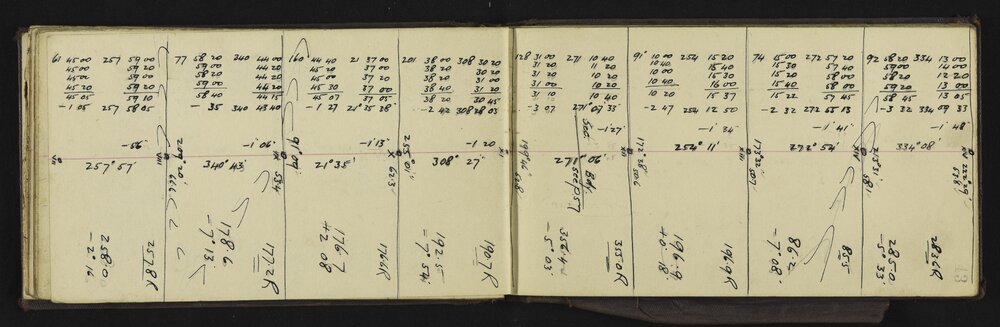 61 45 00 257 59 00 77 58 20 340 44 20 160 44 40 21 37 00 201 38 00 308 30 20
45 00 59 20 59 00 44 20 45 00 37 00 38 20 30 20
45 20 59 00 58 20 44 00 45 00 37 20 38 20 31 00
45 00 59 20 59 00 44 20 45 20 37 00 38 40 31 20
45 05 59 10 58 40 44 15 45 07 37 05 38 20 30 45
-1 05 257 58 05 -35 340 43 40 -1 27 21° 35 38 -2 42 308 28 03
-56 -1' 06 -1' 13 -1 20
257° 57' 340° 43' 21° 35' 308° 27'
VIII
209° 20'
666
-91° 09'
534
X
255° 01'
623
XI
258.0
-2° 16
257.8 R
178.6
-7° 13
177.2 R
176.7
+2 08
176.6 R
192.5
-7° 54
190.7 R
128 31 00 271 10 40 91° 10 00 254 15 20 74 15 00 272 57 20 92 58 20 334 13 00
31 20 11 20 10 00 15 40 15 30 57 40 59 00 14 00
31 00 10 20 10 20 15 30 15 20 58 00 58 20 12 20
31 20 10 20 10 40 16 00 15 40 58 00 59 20 13 00
31 10 10 40 10 20 15 37 15 22 57 45 58 45 13 05
-3 07 271° 07 33 -2 47 254 12 50 -2 32 272 55 13 -3 32 334 09 33
-1' 27 -1' 34 -1' 41 -1' 48
271° 06' 254° 11' 272° 54' 334° 08
190° 46'
528
XII
172° 38'
506
XIII
173° 32'
507
XIV
275° 31'
581
XV
222° 29'
528
356.4
-5° 03'
355.0 R
196.9
+0° 18'
196.9 R
86.2
-7° 08'
85.5
285.0
-5° 33'
283.6 R
13